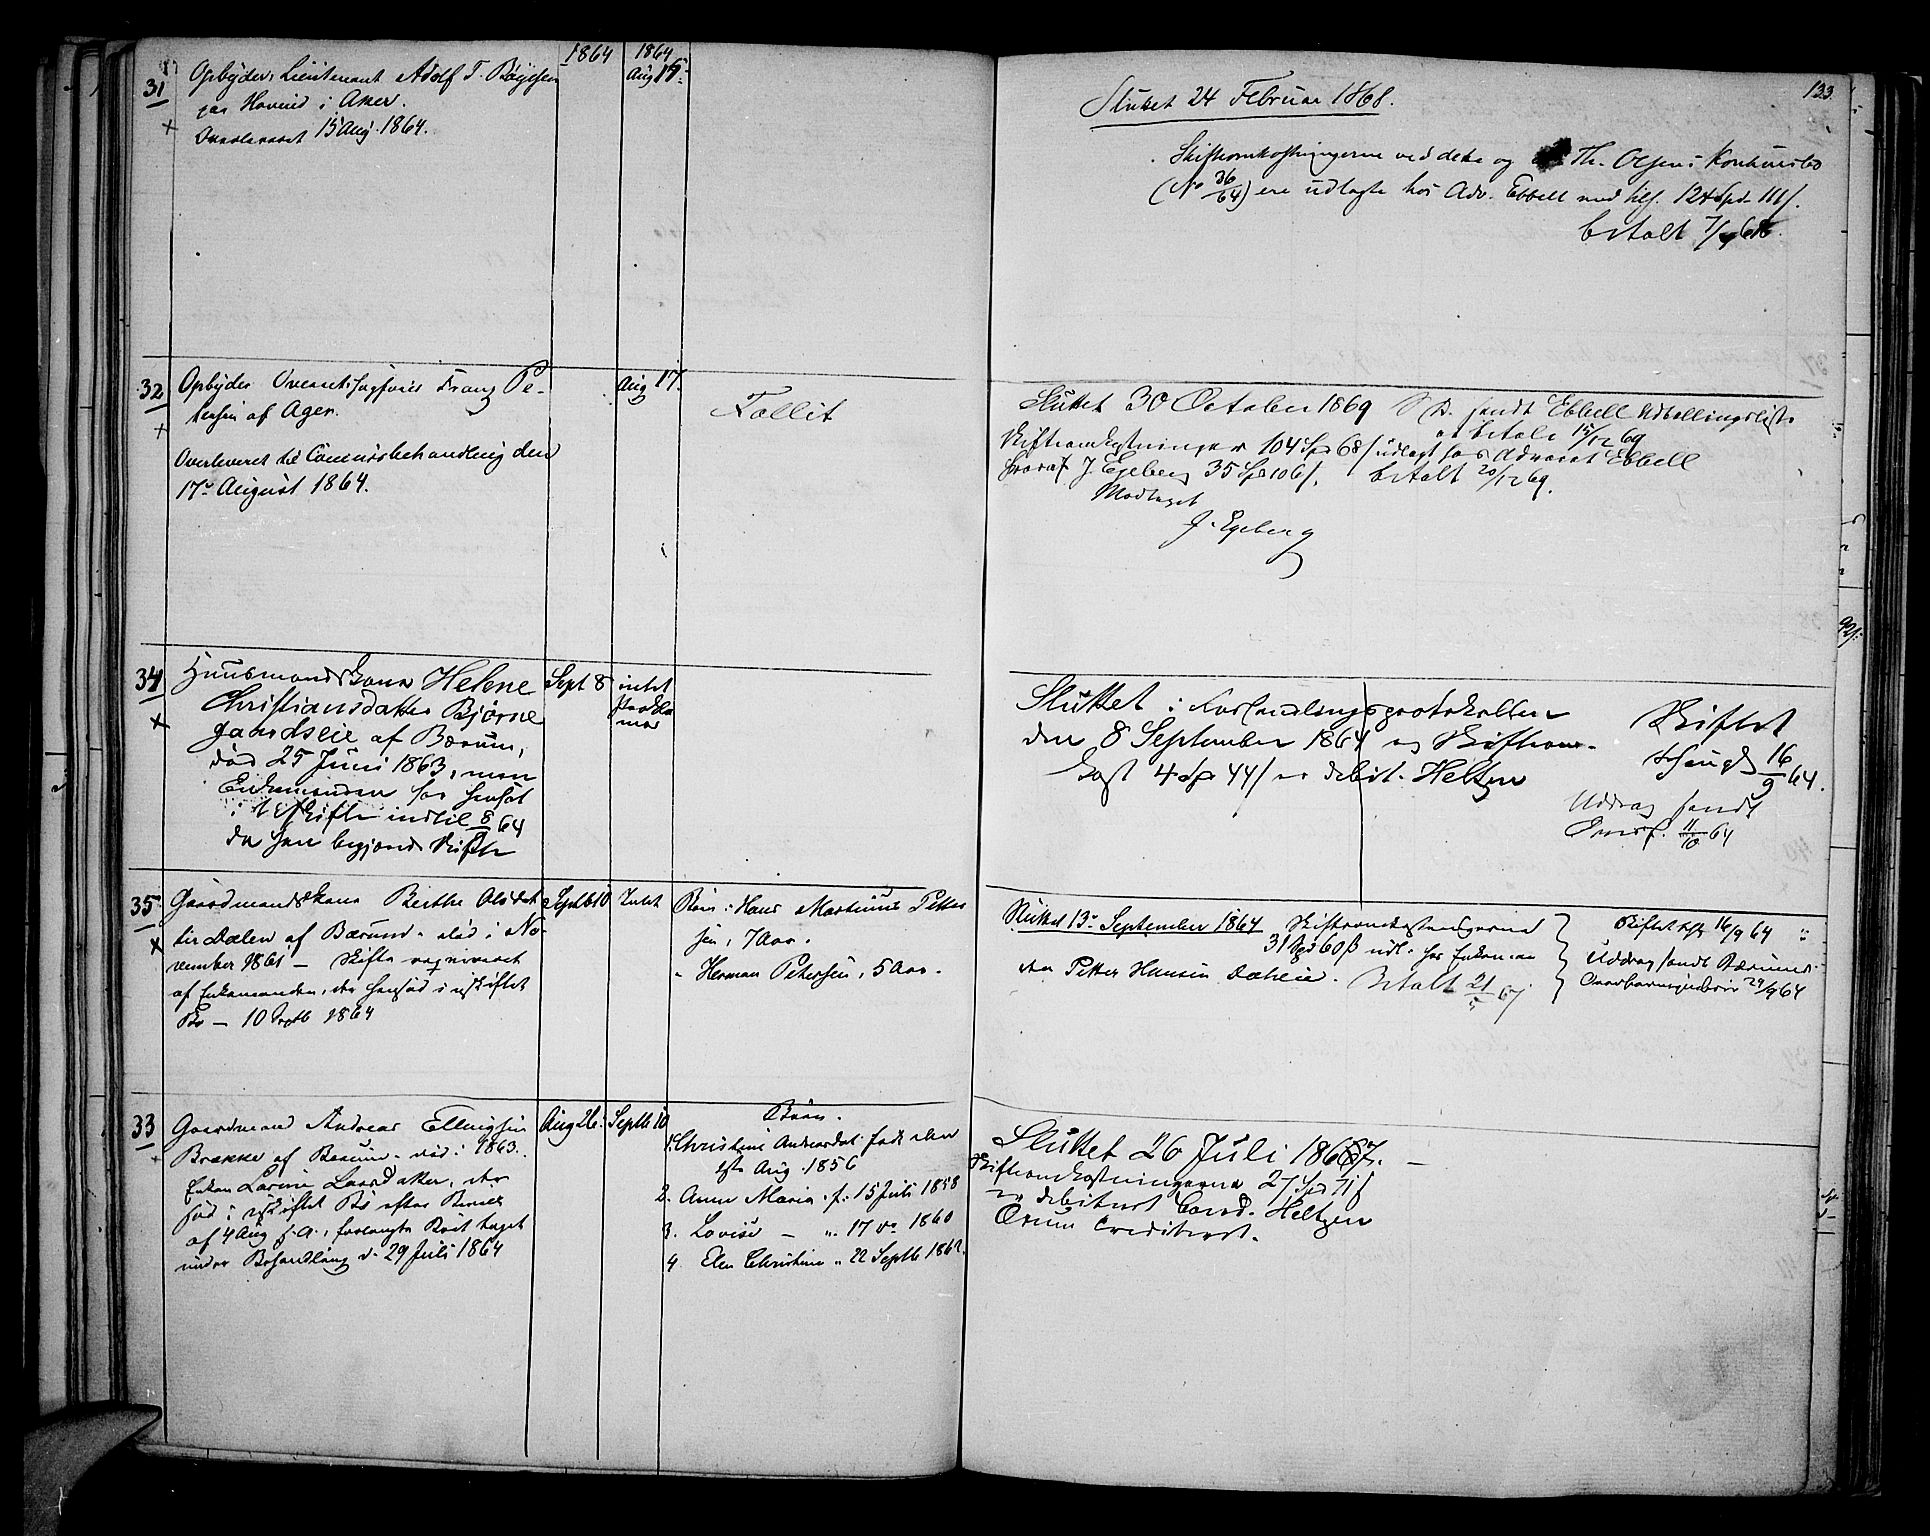 133
1864
1864
31
Opbyder, Lieutenant Adolf T. Boyesen
paa Hovind i Aker.
Overleveret 15 Aug. 1864.
Aug 15
Sluttet 24 Februar 1868.
Skifteomkostningerne ved dette og Th. Olsens Konkursbo
(No 36/64) ere udlagte hos Adv. Ebbell med tils. 124 Spd. 111 s.
betalt
32
Opbyder Overretssagfører Franz Pe-
tersen af Ager.
Overleveret til Concursbehandling den
17de August 1864.
Aug 17.
Fallit
Sluttet 30 October 1869 sendt Ebbell Udtællingsliste
betalt 15/12 69
Skifteomkostninger 104 Sp 68 s udlagt hos Advocat Ebbell
hvoraf J. Egeberg 35 Sp 106 s. betalt 20/12 69.
Modtaget
J. Egeberg
34
Huusmandskone Helene
Christiansdatter Bjørne
gaardseie af Bærum,
død 25 Juni 1863, men
Enkemanden har hensat
i uskifte indtil 8/9 64
da han begjærede Skifte
Sept 8
intet
Sluttet i Forhandlingsprotokollen
den 8 September 1864 og Skifteom-
kost 4 Sp 44 s er debit. Heltzen
Skiftet
16/9 64.
Uddrag sendt
11/10 64
35
Gaardmandskone Berthe Olsdat
ter Dælen af Bærum. død i No-
vember 1861 — Skifte requireret
af Enkemanden, der hensad i uskiftet
Bo — 10 Septb 1864
Septb 10
Intet
Børn: Hans Martinius Petter
sen, 7 Aar.
" Herman Pettersen, 5 Aar.
Sluttet 13de September 1864 Skifteomkostningerne
31 Spd 60 β udl. hos Enkeman
den Petter Hansen Dælen. Betalt 21/5 67
Skiftet 16/9 64
Uddrag sendt Bærums
Overformynderi 29/9 64
33
Gaardmand Andreas Ellingsen
Brække af Bærum. død: 1863.
Enken Larine Larsdatter, der
sad i uskiftet Bo efter Bevilg
af 4 Aug f. A., forlangte Boet taget
under Behandling d. 29 Juli 1864
Aug 26.
Septb 10
Børn.
1. Christine Andreasdat. født den
Aug. 1856
2. Anne Maria. f. 15 Juli 1858
3. Lovise — ". 17 do 1860
4 Elen Christine " 22 Septb 1862.
Sluttet 26 Juli 1867. —
Skifteomkostningerne 27 Spd 71 s
er debiteret Cand. Heltzen
Ørum Crediteret.